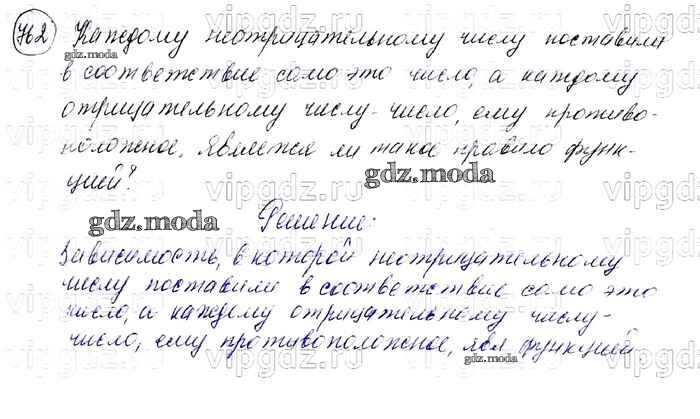 762 Каждому неотрицательному числу поставили
в соответствие само это число, а каждому
отрицательному числу - число, ему противо-
положное. Является ли такое правило функ-
цией?
Решение:
Зависимость, в которой неотрицательному
числу поставили в соответствие само это
число, а каждому отрицательному числу -
число, ему противоположное, явл функцией.
gdz.moda
gdz.moda
gdz.moda
gdz.moda
vipgdz.ru